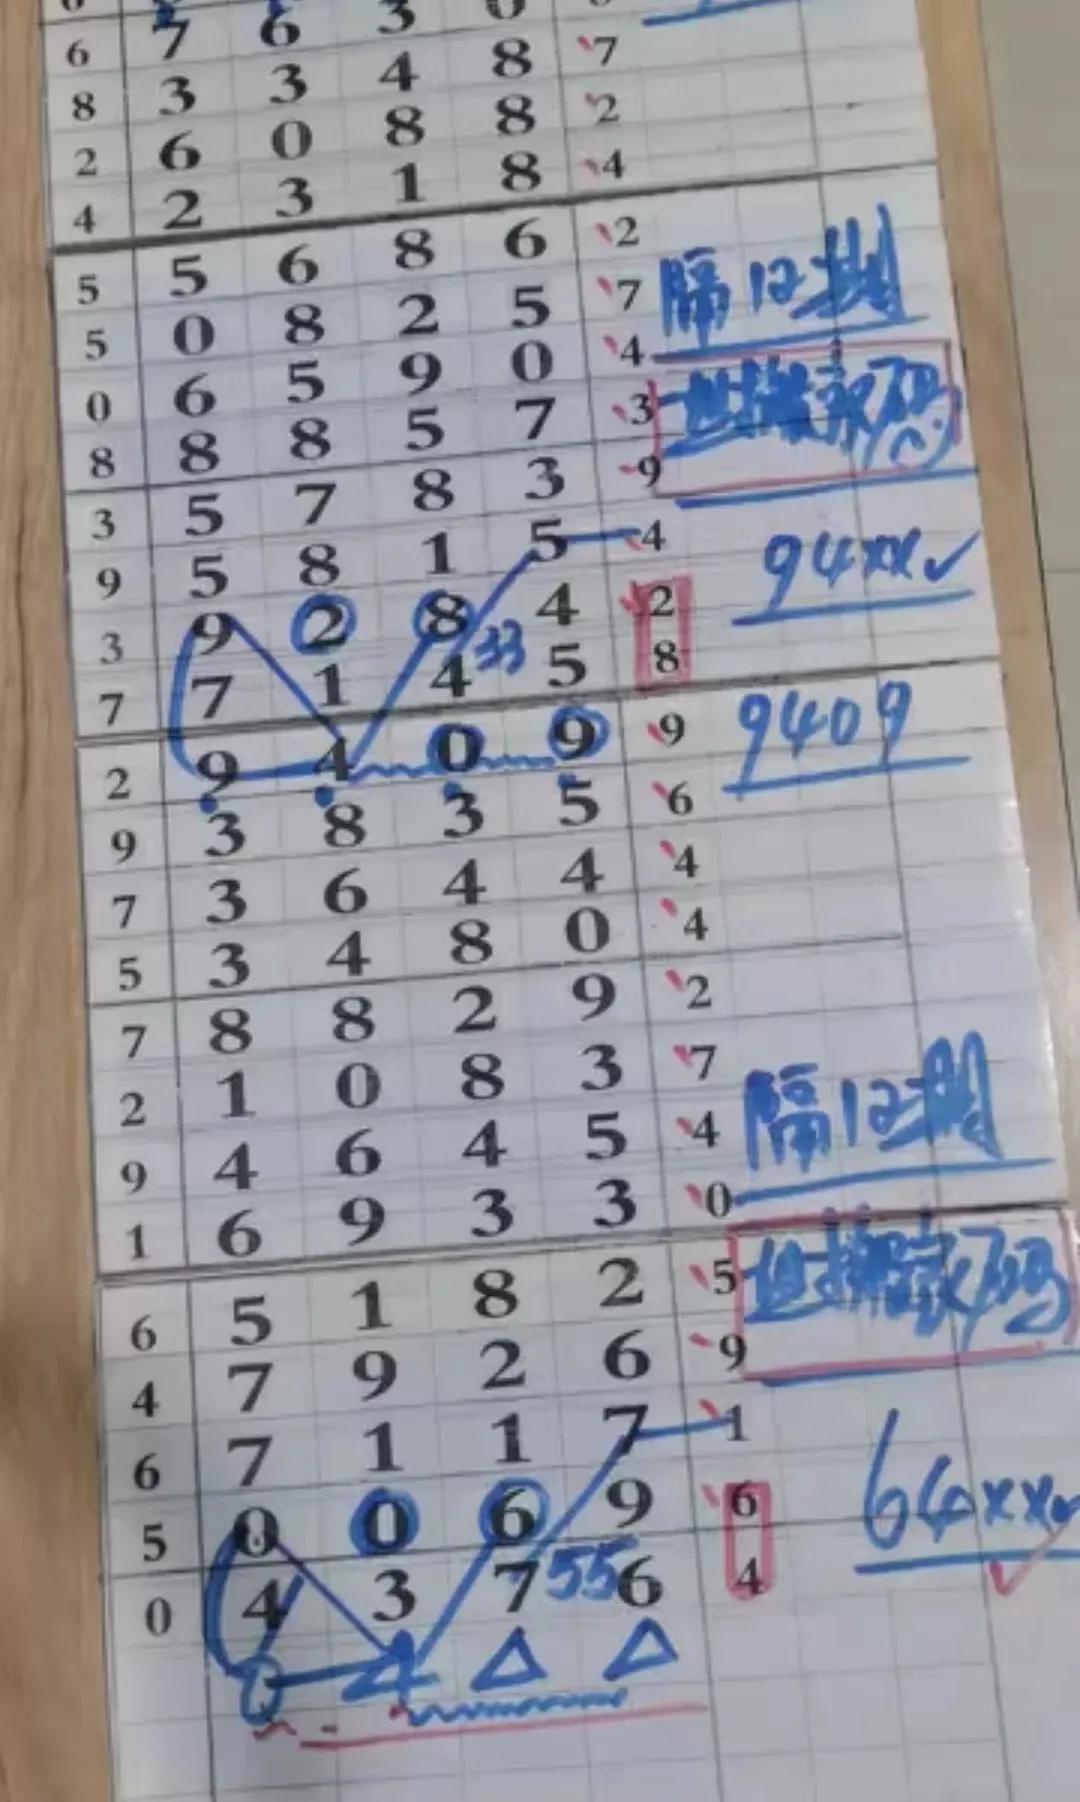 7 6 3 0
6 3 3 4 8 7
8 6 0 8 8 2
2 2 3 1 8 4
4 5 6 8 6 2
5 0 8 2 5 7 隔12期
5 6 5 9 0 4
0 8 8 5 7 3
8 5 7 8 3 9
3 5 8 1 5 4 94xx✓
9 9 2 8 4 2
33
3 7 1 4 5 8
7 9 4 0 9 9 9409
2 3 8 3 5 6
9 3 6 4 4 4
7 3 4 8 0 4
5 8 8 2 9 2
7 1 0 8 3 7
2 4 6 4 5 4 隔12期
9 6 9 3 3 0
1 5 1 8 2 5
6 7 9 2 6 9
4 7 1 1 7 1
6 0 0 6 9 6 64xx✓
5 4 3 7 55 6 4
0 0 4 △ △